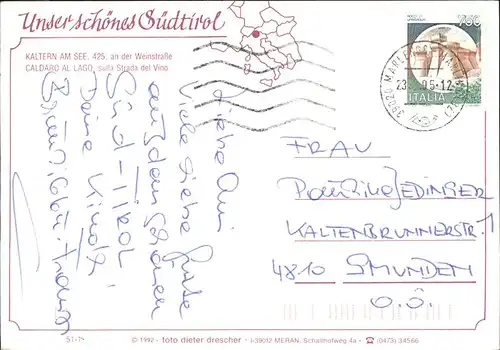 Unser schönes Südtirol
KALTERN AM SEE, 425, an der Weinstraße
CALDARO AL LAGO, sulla Strada del Vino
Liebe Omi
Viele liebe Grüße
aus dem schönen
Süd-Tirol
Deine
750
ITALIA
39020
23
95-12
FRAU
Pauline JEDINGER
KALTENBRUNNERSTR. 1
4810 GMUNDEN
O.Ö.
© 1992 - foto dieter drescher - I-39012 MERAN, Schallhofweg 4a - ☎ (0473) 34566